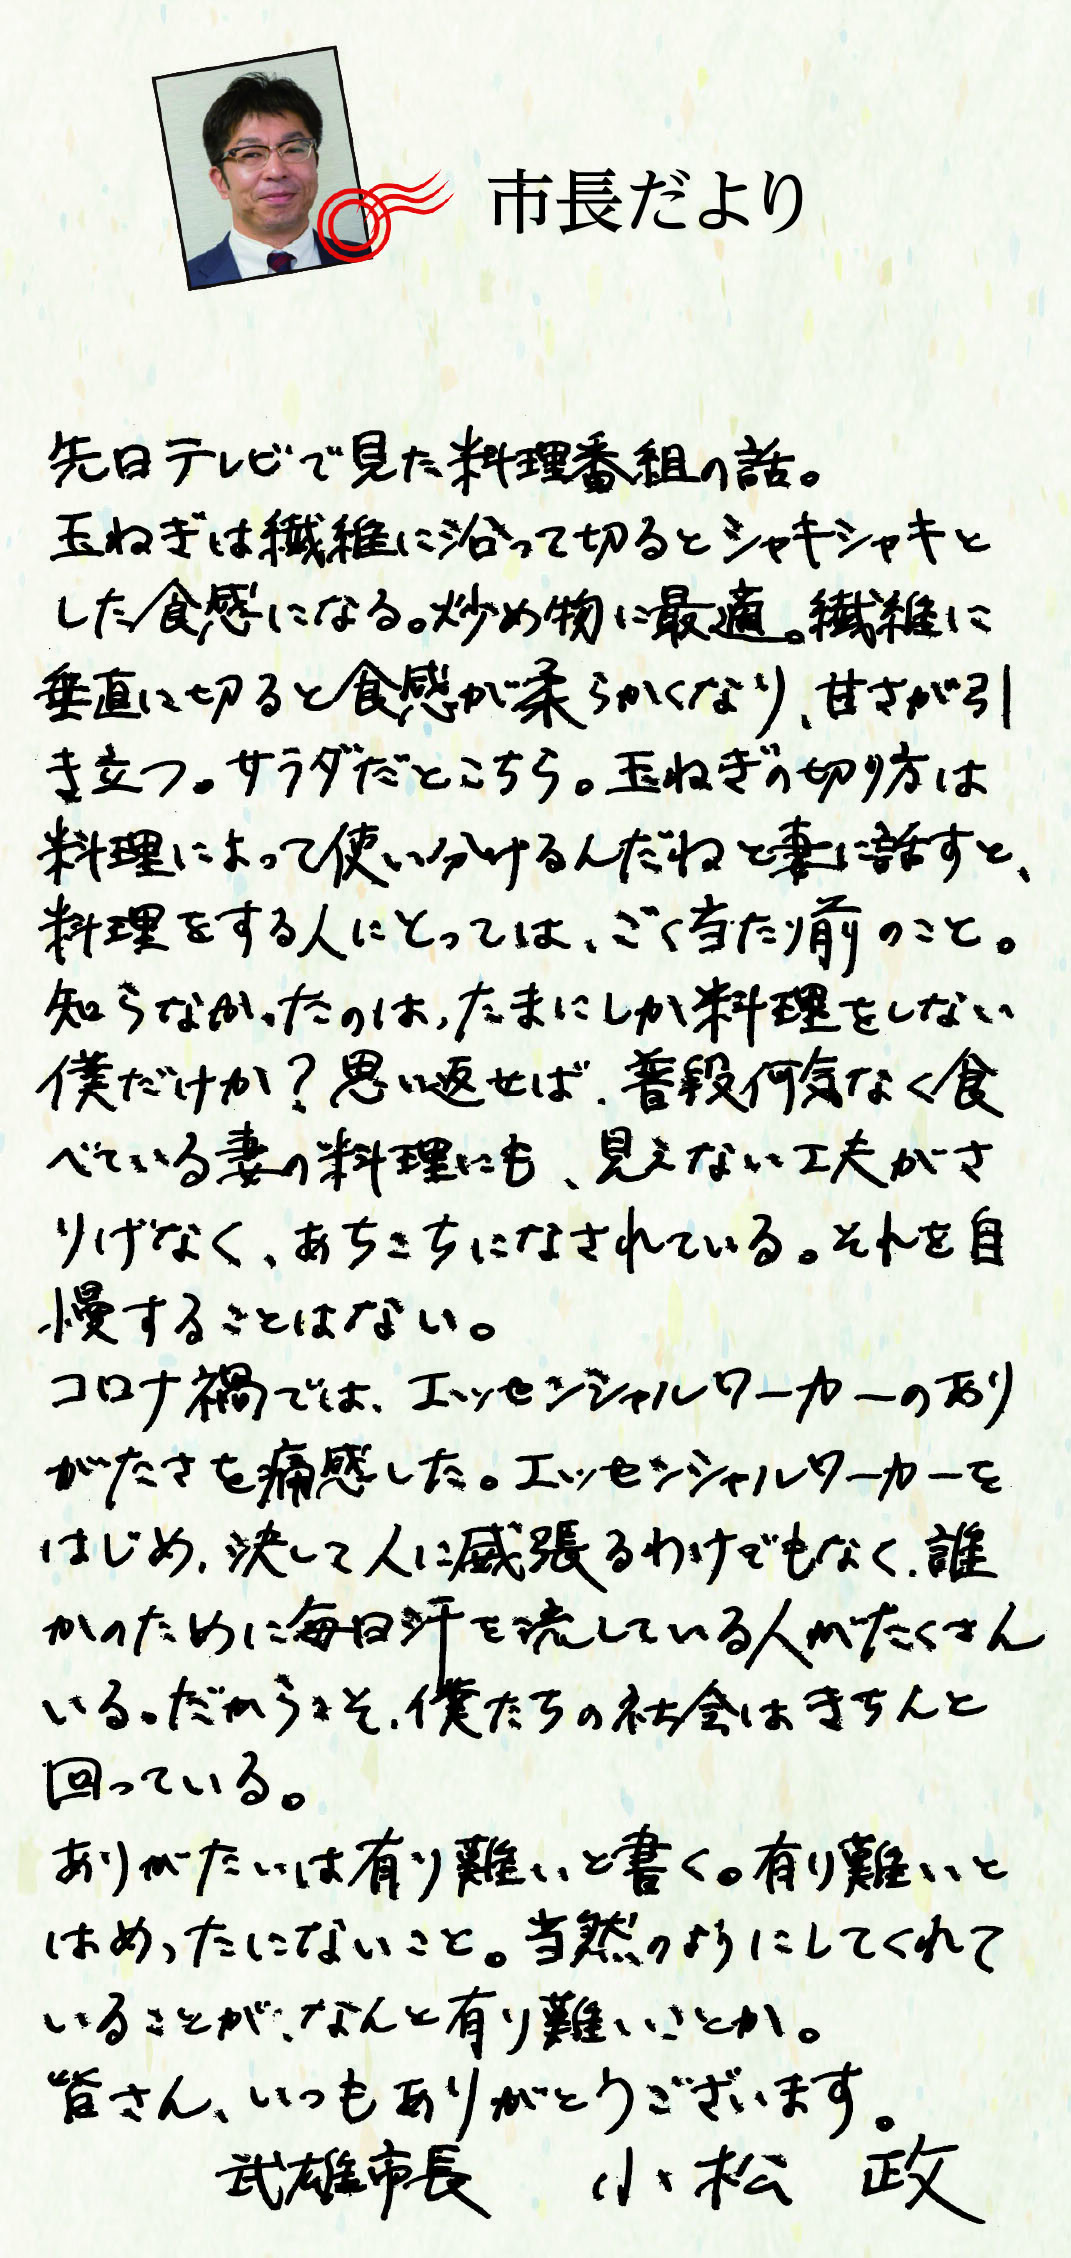 市長だより
先日テレビで見た料理番組の話。
玉ねぎは繊維に沿って切るとシャキシャキと
した食感になる。炒め物に最適。繊維に
垂直に切ると食感が柔らかくなり、甘さが引
き立つ。サラダだとこちら。玉ねぎの切り方は
料理によって使い分けるんだねと妻に話すと、
料理をする人にとっては、ごく当たり前のこと。
知らなかったのは、たまにしか料理をしない
僕だけか?思い返せば、普段何気なく食
べている妻の料理にも、見えない工夫がさ
りげなく、あちこちになされている。それを自
慢することはない。
コロナ禍では、エッセンシャルワーカーのあり
がたさを痛感した。エッセンシャルワーカーを
はじめ、決して人に威張るわけでもなく、誰
かのために毎日汗を流している人がたくさん
いる。だからこそ、僕たちの社会はきちんと
回っている。
ありがたいは有り難いと書く。有り難いと
はめったにないこと。当然のようにしてくれて
いることが、なんと有り難いことか。
皆さん、いつもありがとうございます。
武雄市長 小松 政